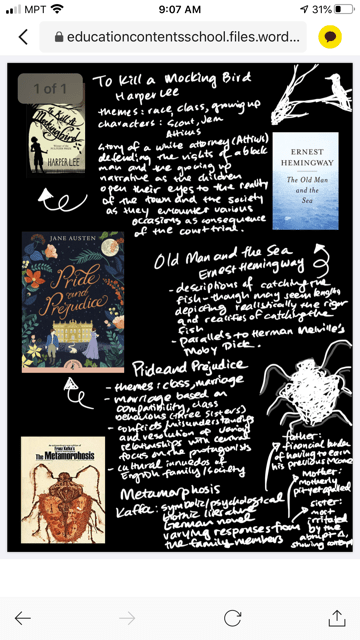 MPT
9:07 AM
31%
educationcontentsschool.files.word...
1 of 1
To Kill a Mocking Bird
Harper Lee
themes: race, class, growing up
characters: Scout, Jem
Atticus
Story of a white attorney (Atticus)
defending the rights of a black
man and the growing up
narrative as the children
open their eyes to the reality
of the town and the society
as they encounter various
occasions as consequence
of the court trial.
To Kill a
Mockingbird
HARPER LEE
ERNEST
HEMINGWAY
The Old Man
and the
Sea
JANE AUSTEN
Pride
and
Prejudice
Old Man and the Sea
Ernest Hemingway
- descriptions of catching the
fish - though may seem lengthy
depicting realistically the rigor
and realities of catching the
fish
- parallels to Herman Melville's
Moby Dick.
Pride and Prejudice
- themes: class, marriage
- marriage based on
compatibility, class
behaviours (three sisters)
- conflicts/misunderstandings
and resolution of
relationships with central
focus on the protagonists
- cultural
English family/society
Franz Kafka's
The Metamorphosis
Metamorphosis
Kafka: symbolic/psychological
gothic literature
German novel
varying responses from
the family members
father:
financial burden
of having to earn
his previous income
Mother:
motherly
pity yet appalled
sister:
most
irritated
by the
abrupt Δ,
showing contempt